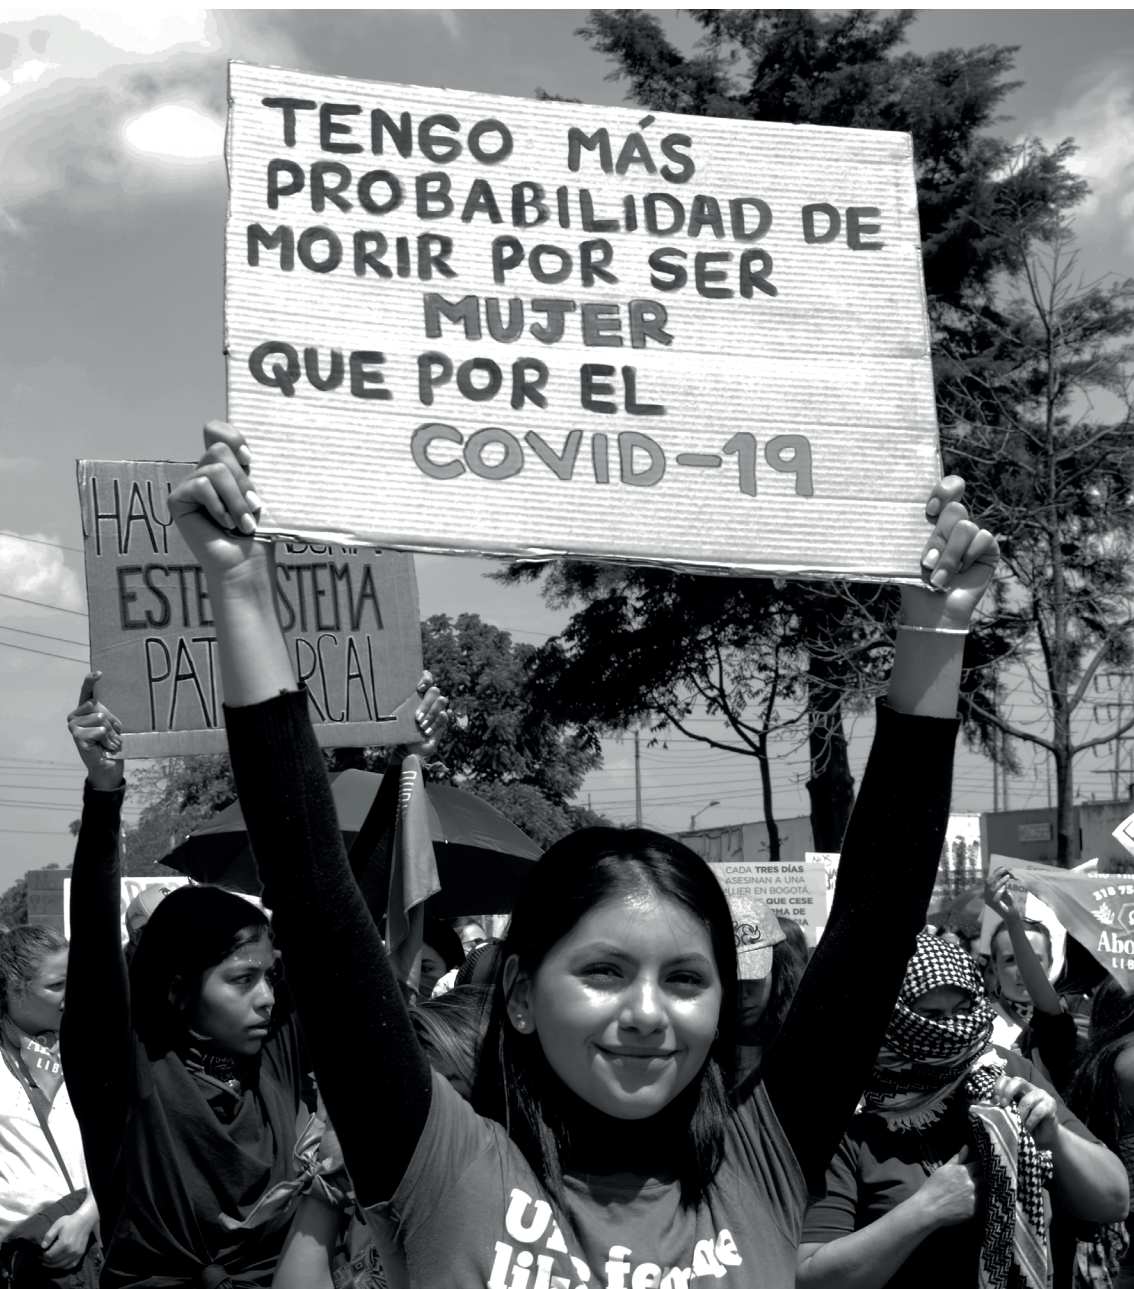 TENGO MÁS
PROBABILIDAD DE
MORIR POR SER
MUJER
QUE POR EL
COVID-19
HAY
ESTE STEMA
PAT RCAL
CADA TRES DÍAS
ASESINAN A UNA
UJER EN BOGOTÁ,
QUE CESE
MA DE
CIA
318 75
Abo
LIB